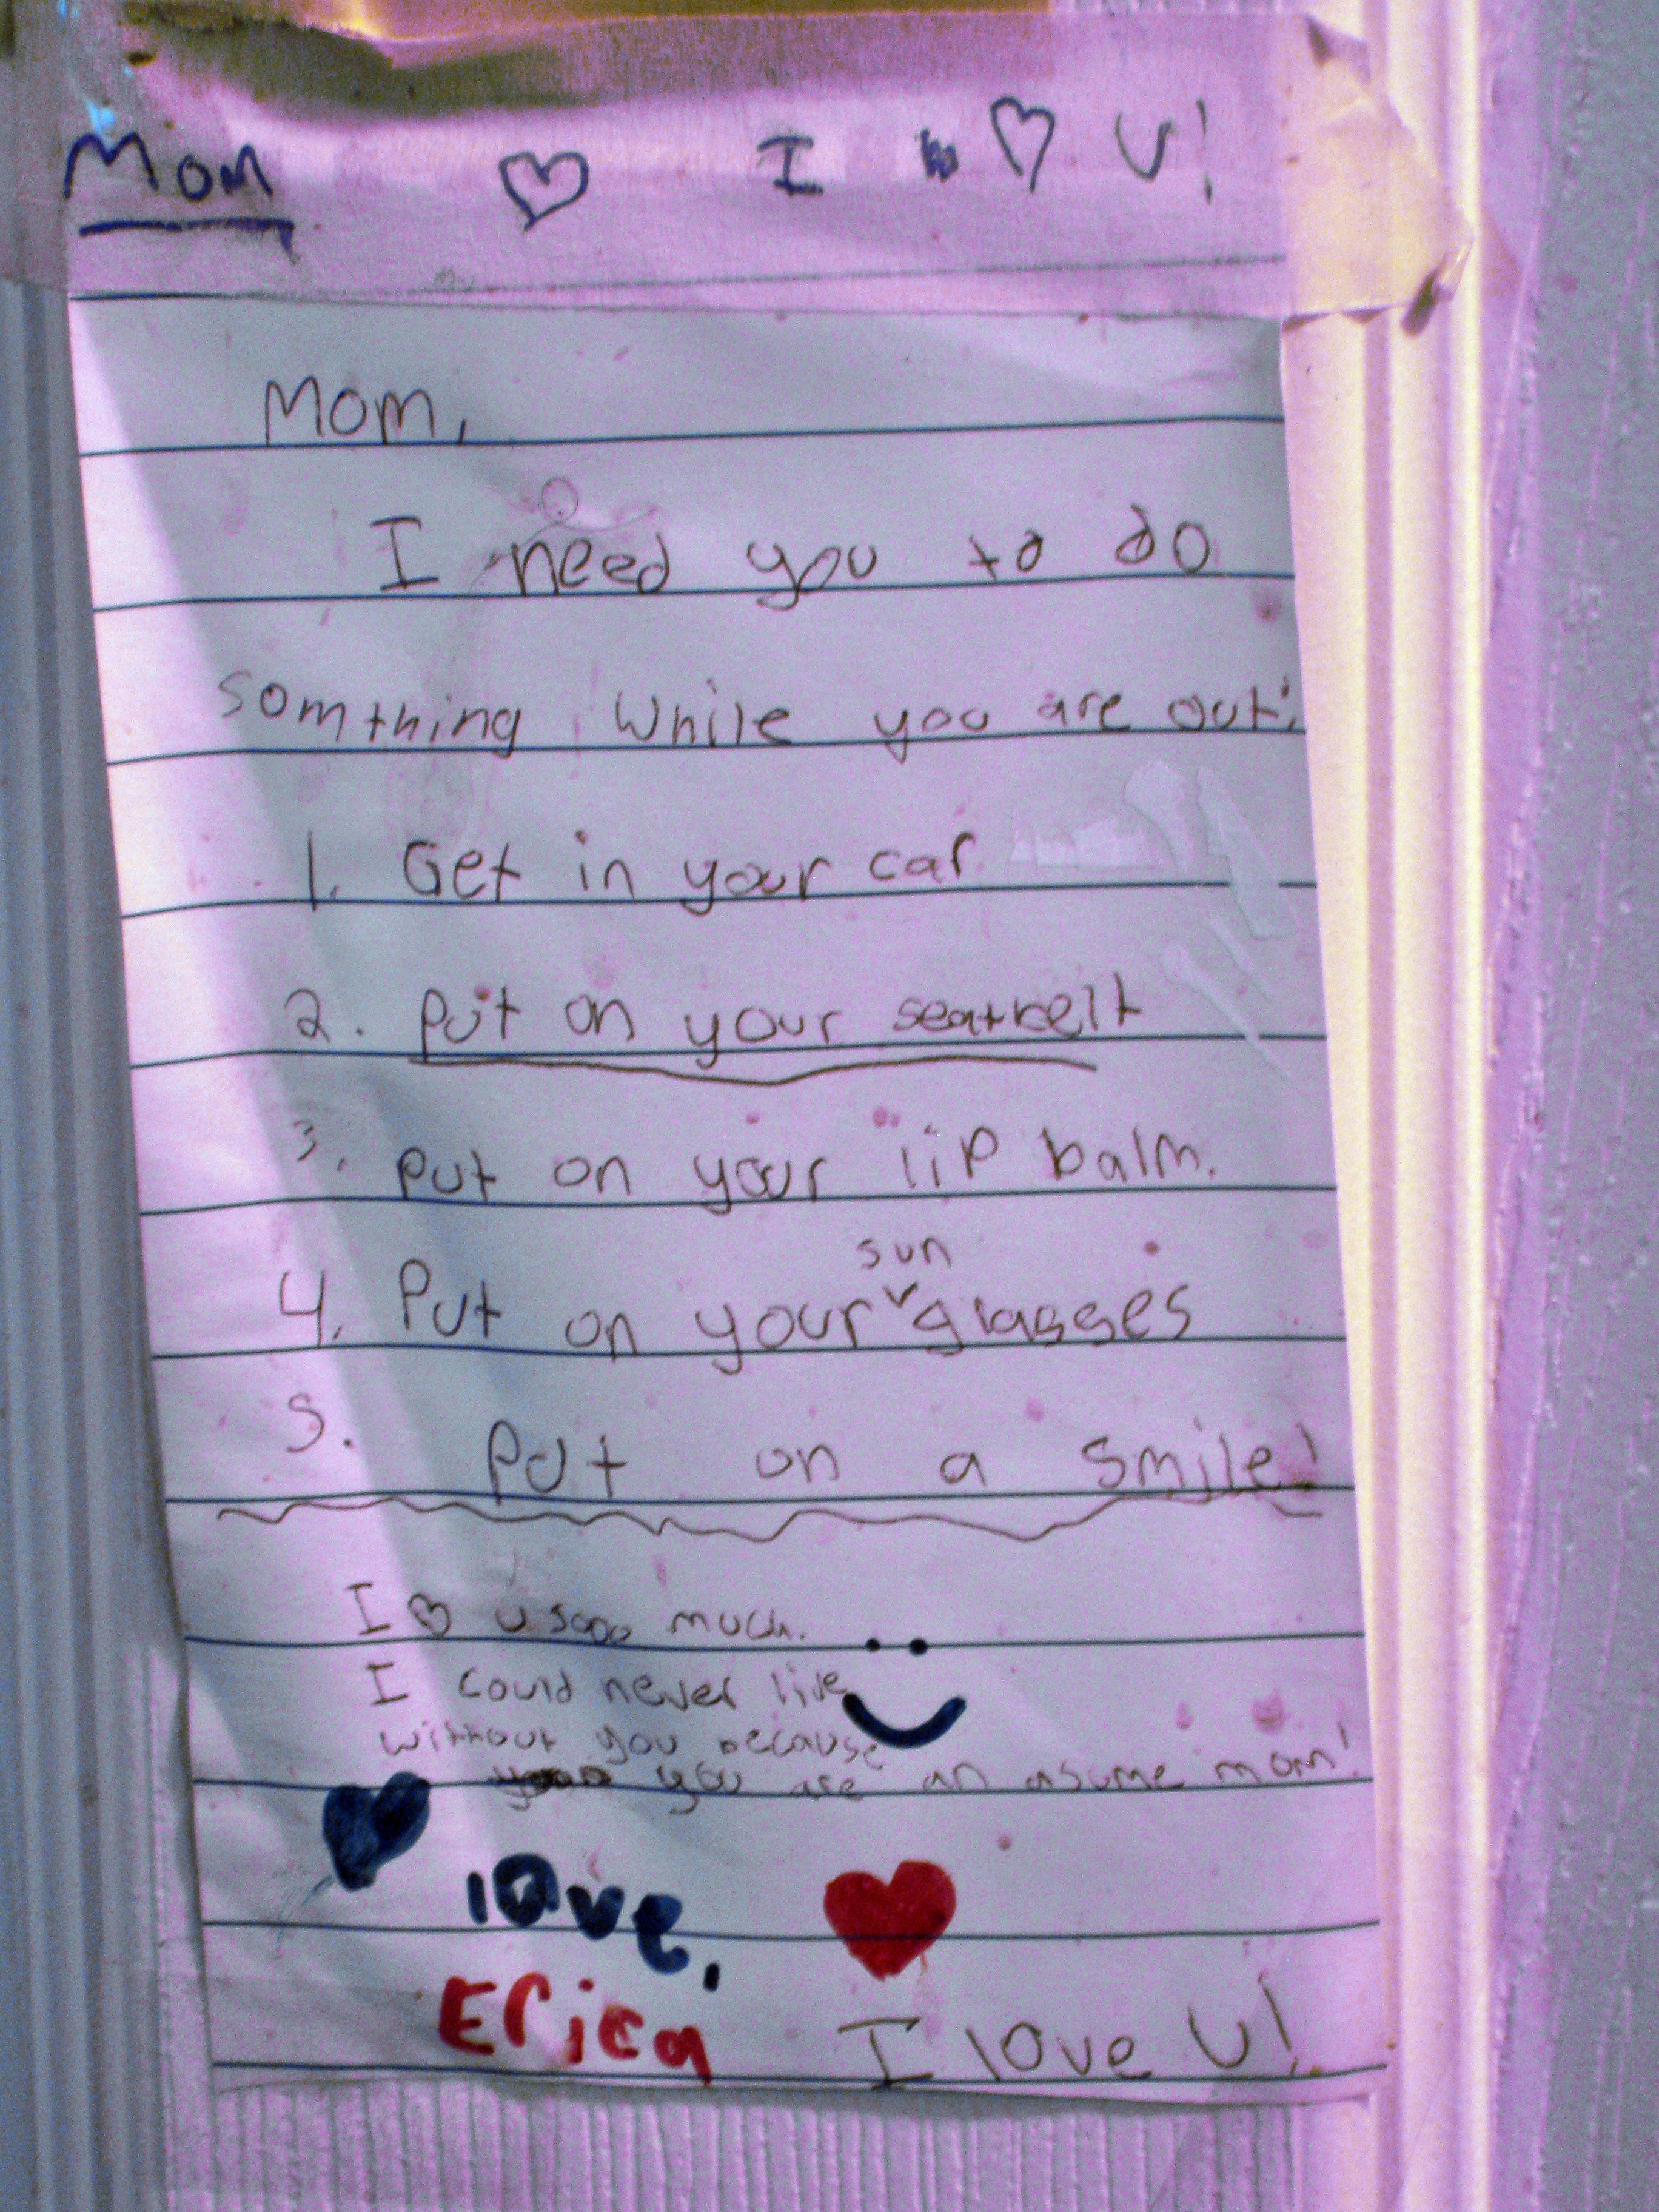 Mom ♡ I ♡ U!
Mom,
I need you to do
somthing while you are out:
1. Get in your car.
2. Put on your seatbelt
3. Put on your lip balm.
sun
4. Put on your glasses
5. Put on a smile!
I ♡ u sooo much.
I could never live
without you because
you are an asume mom!
love,
Erica I love U!